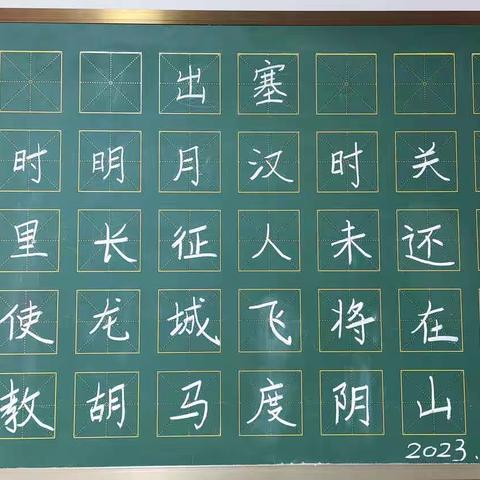 出塞
时明月汉时关
里长征人未还
使龙城飞将在
教胡马度阴山
2023.